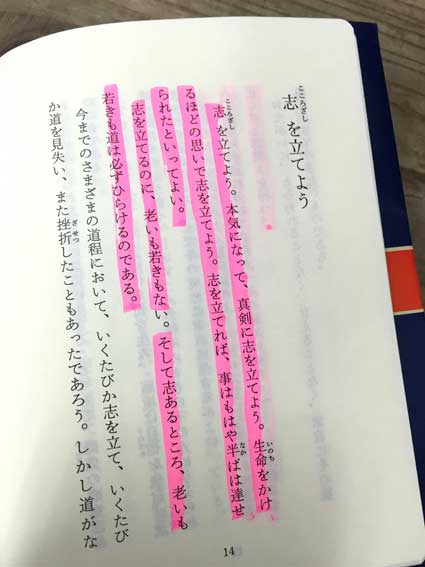 志を立てよう
志を立てよう。本気になって、真剣に志を立てよう。生命をかけ
るほどの思いで志を立てよう。志を立てれば、事はもはや半ばは達せ
られたといってよい。
志を立てるのに、老いも若きもない。そして志あるところ、老いも
若きも道は必ずひらけるのである。
今までのさまざまの道程において、いくたびか志を立て、いくたび
か道を見失い、また挫折したこともあったであろう。しかし道がな
14